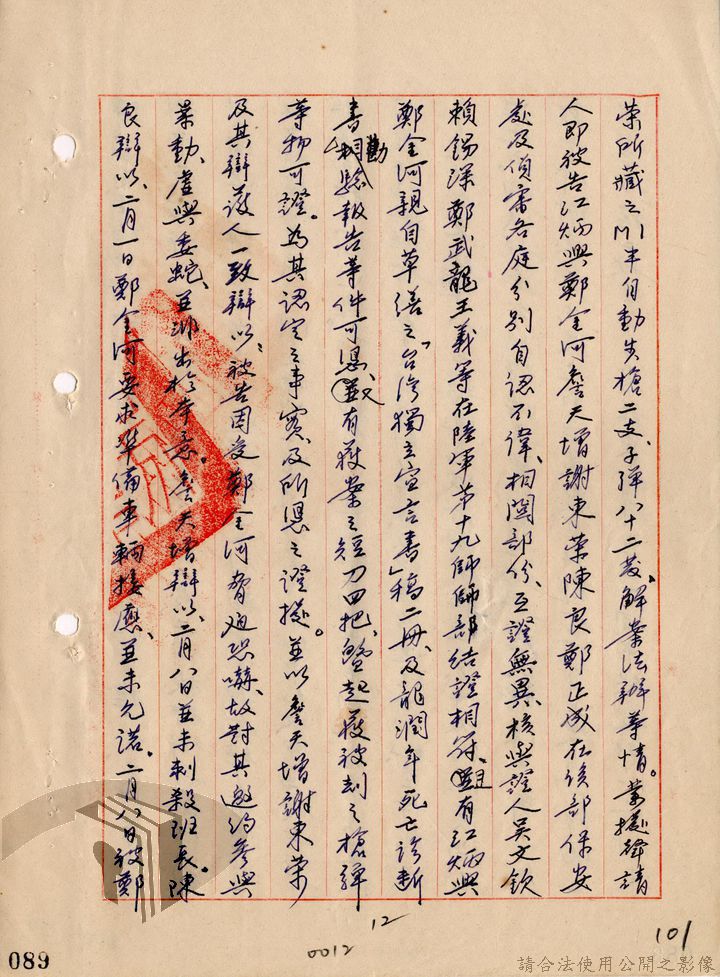 榮所藏之M1半自動步槍二支、子彈八十二發、解案法辦等情。業據韓請
人即被告江炳興鄭金河詹天增謝東榮陳良鄭正成在該部保安
處及偵審各庭分別自認不諱、相關部份、互證無異、核與證人吳文欽
賴錫深鄭武龍王義等在陸軍第十九師師部結證相符、且有江炳興
鄭金河親自草繕之「台灣獨立宣言書」稿二冊、及龍潤年死亡診斷
書、勘驗報告等件可憑、並有獲案之短刀四把、暨起獲被刦之槍彈
等物可證。為其認定之事實、及所憑之證據。並以詹天增謝東榮
及其辯護人一致辯以、被告因受鄭金河脅迫恐嚇、故對其邀約參與
暴動、虛與委蛇、並非出於本意。詹天增辯以、二月八日並未刺殺班長。陳
良辯以、二月一日鄭金河要求準備車輛接應、並未允諾。二月八日被鄭
12
0012
101
089
請合法使用公開之影像